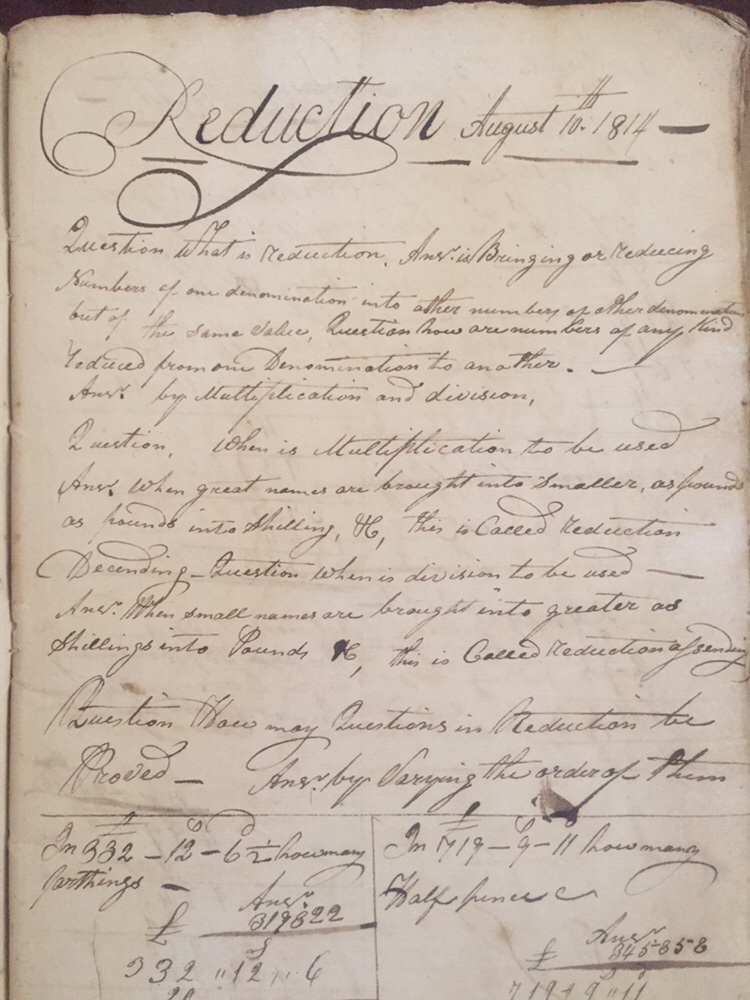 Reduction August 10th 1814 —
Question What is reduction. Answ. is Bringing or reducing
Numbers of one denomination into other numbers of other denomination
but of the same value, Question how are numbers of any Kind
reduced from one Denomination to another. —
Answ. by Multiplication and division,
Question, When is Multiplication to be used
Answ. When great names are brought into Smaller, as pounds
as pounds into Shilling, &c, this is Called reduction
Decending — Question when is division to be used —
Answ. When small names are brought into greater as
Shillings into Pounds &c, this is Called reduction assending
Question How may Questions in Reduction be
Proved — Answ. by Varying the order of them
£ s d
In 332 – 12 – 6 ½ how many
farthings —
Answ.
319322
£ s
332 „ 12 „ 6
20
£ s d
In 719 – 9 – 11 how many
Half pence
Answ.
345358
£ s d
719 „ 9 „ 11